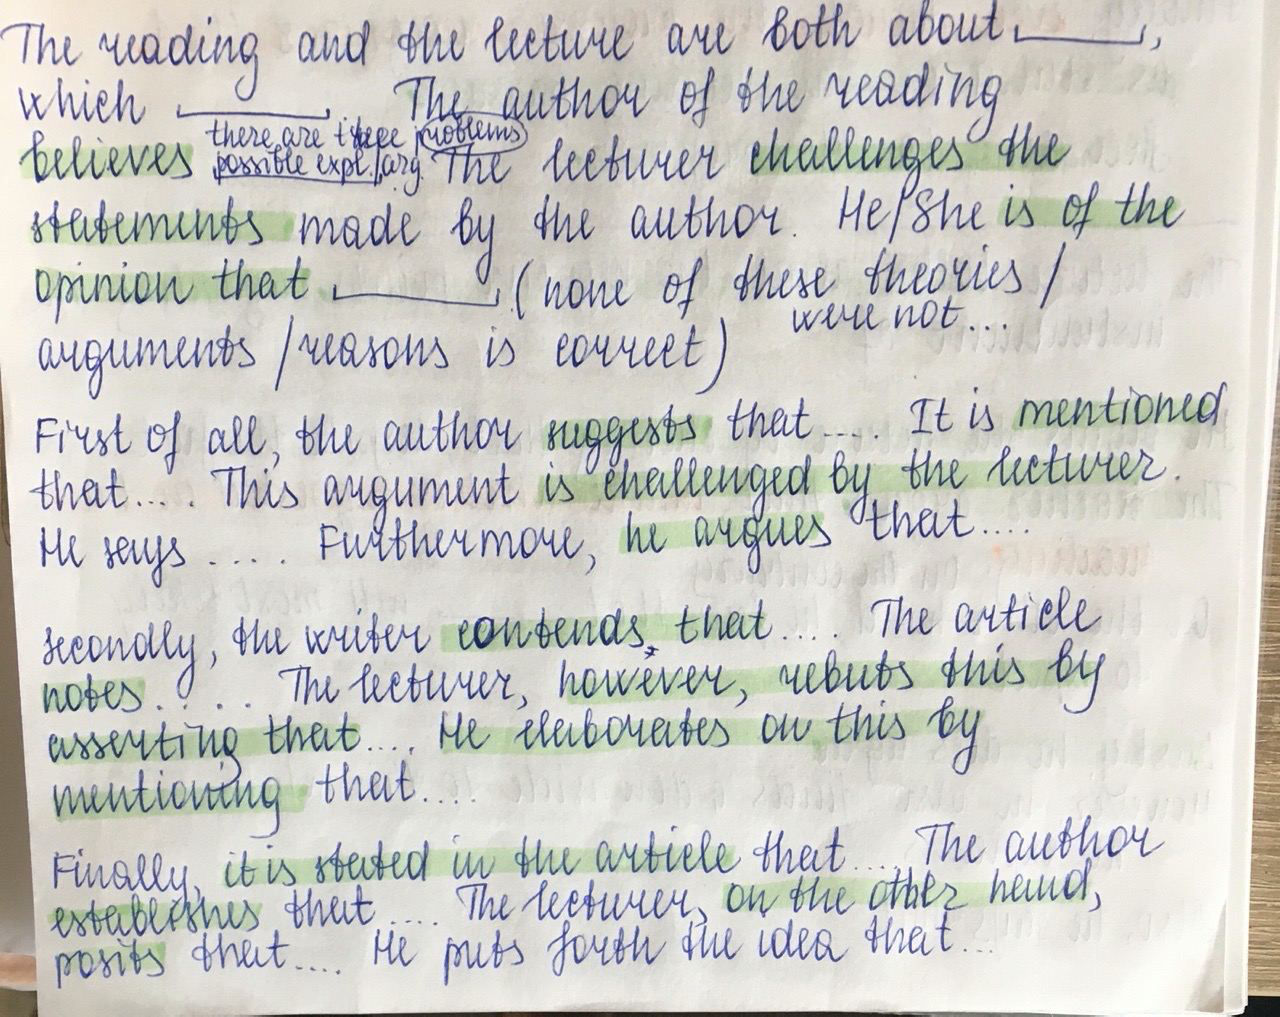 The reading and the lecture are both about ______,
which ______. The author of the reading
there are three problems
believes possible expl./arg. The lecturer challenges the
statements made by the author. He/She is of the
opinion that ______. (none of these theories/
were not...
arguments/reasons is correct)
First of all, the author suggests that.... It is mentioned
that.... This argument is challenged by the lecturer.
He says ..... Furthermore, he argues that....
Secondly, the writer contends that.... The article
notes..... The lecturer, however, rebuts this by
asserting that.... He elaborates on this by
mentioning that....
Finally, it is stated in the article that.... The author
establishes that.... The lecturer, on the other hand,
posits that.... He puts forth the idea that...